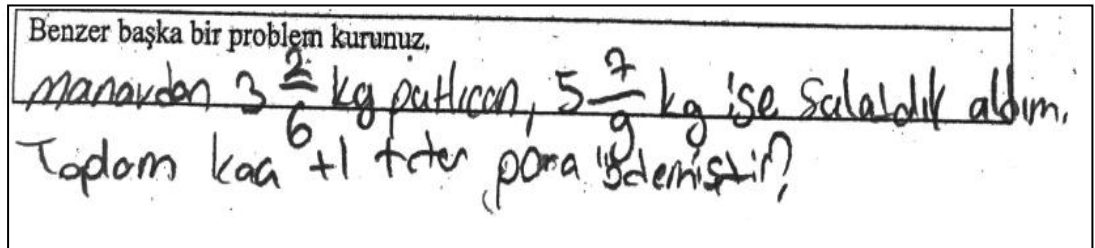 Benzer başka bir problem kurunuz.
Manavdan 3 2/6 kg patlıcan, 5 7/9 kg ise salatalık aldım.
Toplam kaç tl tutar para ödemiştir?